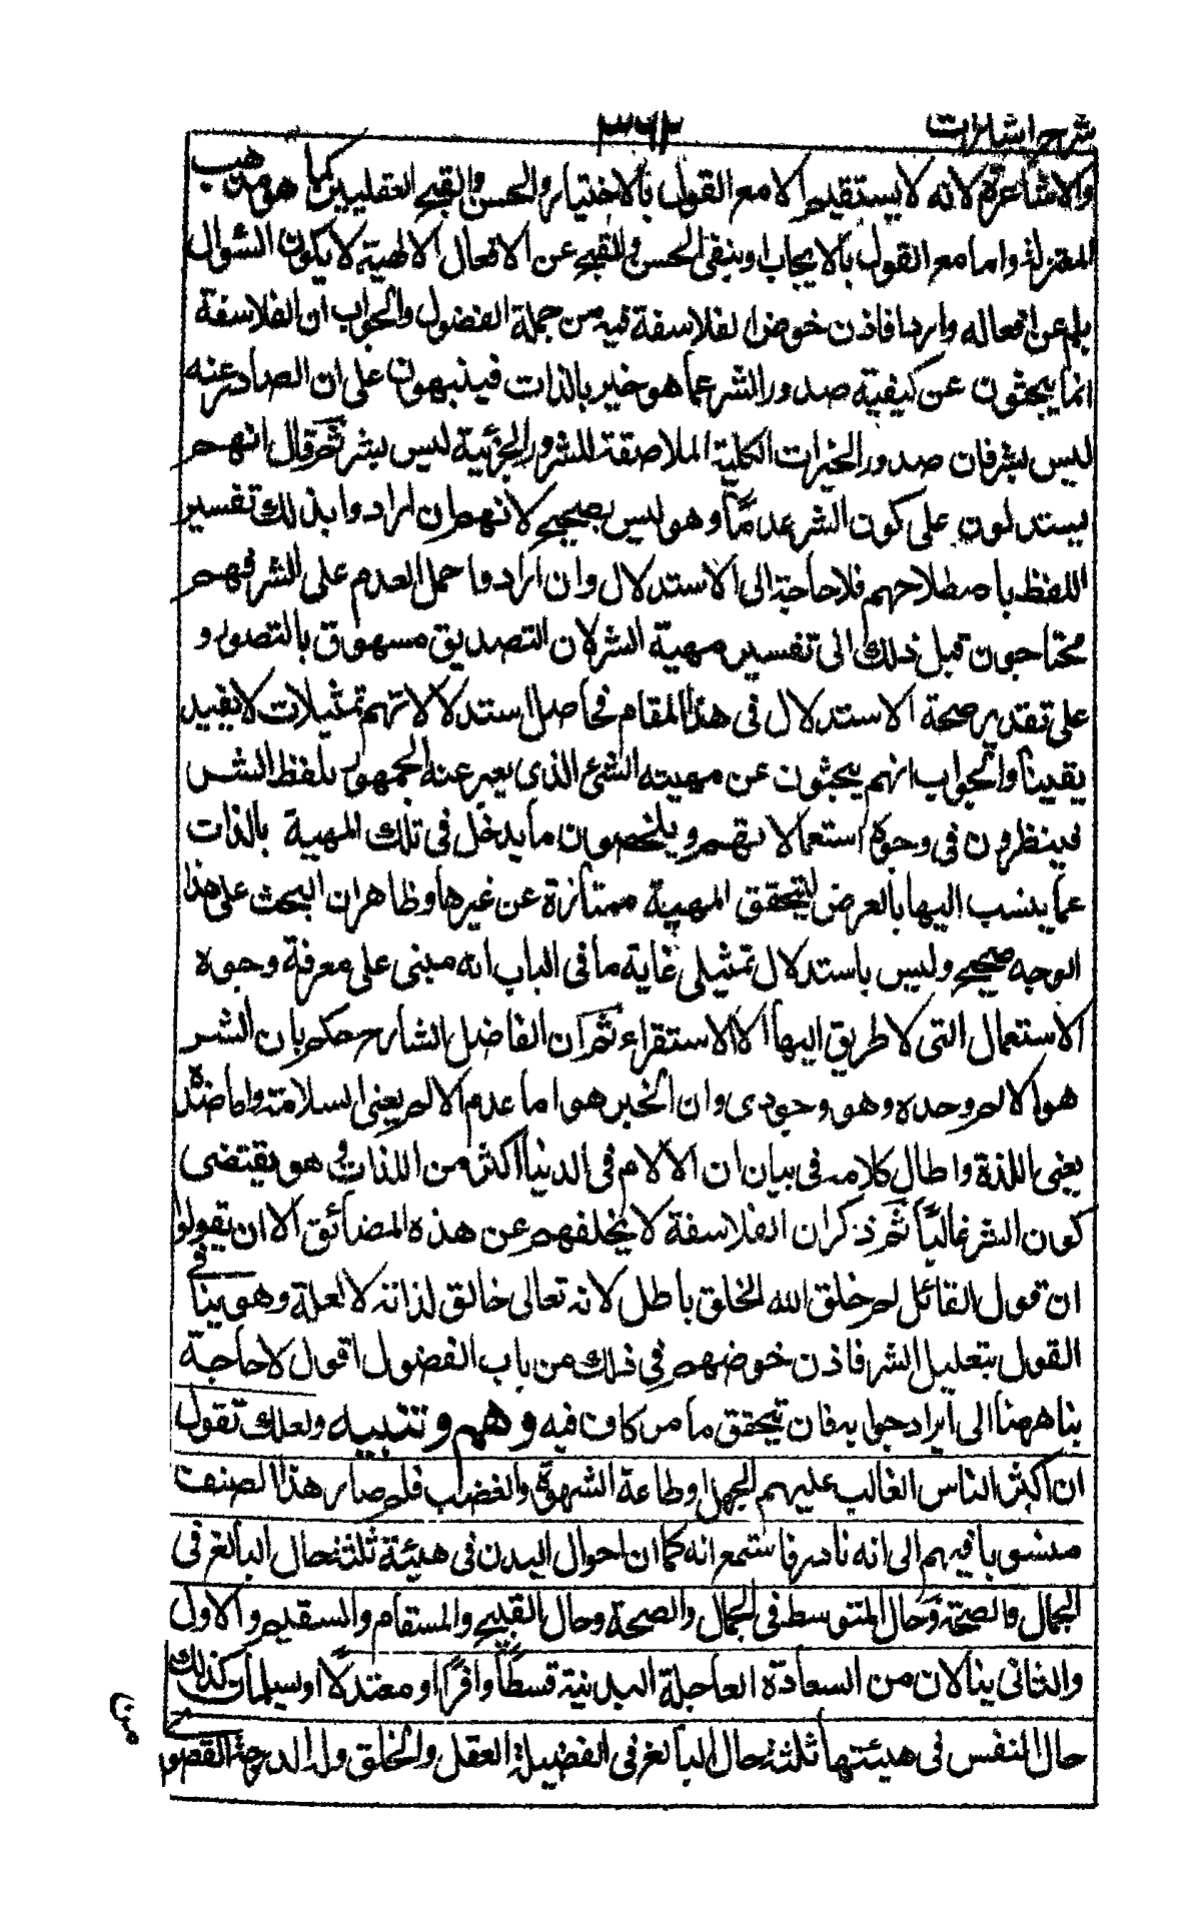 شرح اشارات
٣٦٢
والاشاعرة لانه لا يستقيم الا مع القول بالاختيار والحسن والقبح العقليين كما هو مذهب
المعتزلة واما مع القول بالايجاب او بنفى الحسن والقبح عن الافعال الالهية لا يكون السؤال
بلم عن افعاله واردا فاذن خوض الفلاسفة فيه من جملة الفضول والجواب ان الفلاسفة
انما يبحثون عن كيفية صدور الشر عما هو خير بالذات فينبهون على ان الصادر عنه
ليس بشر فان صدور الخيرات الكلية الملاصقة للشرور الجزئية ليس بشر ثم قال انهم
يستدلون على كون الشر عدما وهو ليس بصحيح لانهم ان ارادوا بذلك تفسير
اللفظ باصطلاحهم فلا حاجة الى الاستدلال وان ارادوا حمل العدم على الشر فهم
محتاجون قبل ذلك الى تفسير مهية الشر لان التصديق مسبوق بالتصور و
على تقدير صحة الاستدلال فى هذا المقام فحاصل استدلالاتهم تمثيلات لا يفيد
يقينا والجواب انهم يبحثون عن مهية الشئ الذى يعبر عنه الجمهور بلفظ الشر
فينظرون فى وجوه استعمالاتهم ويلخصون ما يدخل فى تلك المهية بالذات
عما ينسب اليها بالعرض ليتحقق المهية ممتازة عن غيرها وظاهر ان البحث على هذا
الوجه صحيح وليس باستدلال تمثيلى غاية ما فى الباب انه مبنى على معرفة وجوه
الاستعمال التى لا طريق اليها الا الاستقراء ثم ان الفاضل الشارح حكم بان الشر
هو الالم وحده وهو وجودى وان الخير هو اما عدم الالم يعنى السلامة واما ضده
يعنى اللذة واطال كلامه فى بيان ان الآلام فى الدنيا اكثر من اللذات و هو يقتضى
كون الشر غالبا ثم ذكر ان الفلاسفة لا يخلفهم عن هذه المضائق الا ان يقولوا
ان قول القائل لم خلق الله الخلق باطل لانه تعالى خالق لذاته لا لعلة وهو ينافى
القول بتعليل الشر فاذن خوضهم فى ذلك من باب الفضول اقول لا حاجة
بنا ههنا الى ايراد جوابه فان تحقق ما مر كاف فيه وهم وتنبيه ولعلك تقول
ان اكثر الناس الغالب عليهم الجهل او طاعة الشهوة والغضب فلم صار هذا الصنف
منسوبا فيهم الى انه نادر فاستمع انه كما ان احوال البدن فى هيئة ثلثة حال البالغ فى
الجمال والصحة وحال المتوسط فى الجمال والصحة وحال القبيح والمسقام والسقيم والاول
والثانى ينالان من السعادة العاجلة البدنية قسطا وافرا او معتدلا او يسلمان كذلك
حال النفس فى هيئتها ثلثة حال البالغ فى الفضيلة العقل والخلق وله الدرجة القصوى
من